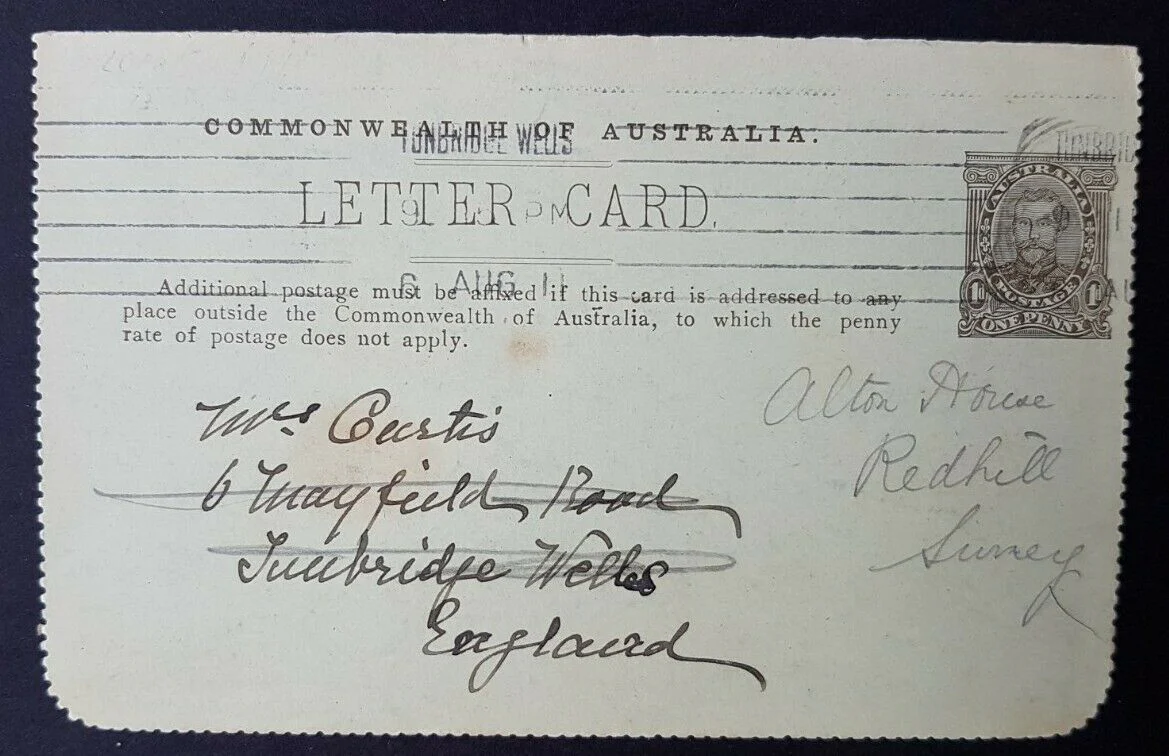 COMMONWEALTH OF AUSTRALIA.
TUNBRIDGE WELLS
LETTER CARD.
9 PM
6 AUG 11
Additional postage must be affixed if this card is addressed to any
place outside the Commonwealth of Australia, to which the penny
rate of postage does not apply.
AUSTRALIA
POSTAGE
1D 1D
ONE PENNY
TUNBRID
AU
Mrs Curtis
6 Mayfield Road
Tunbridge Wells
England
Alton House
Redhill
Surrey